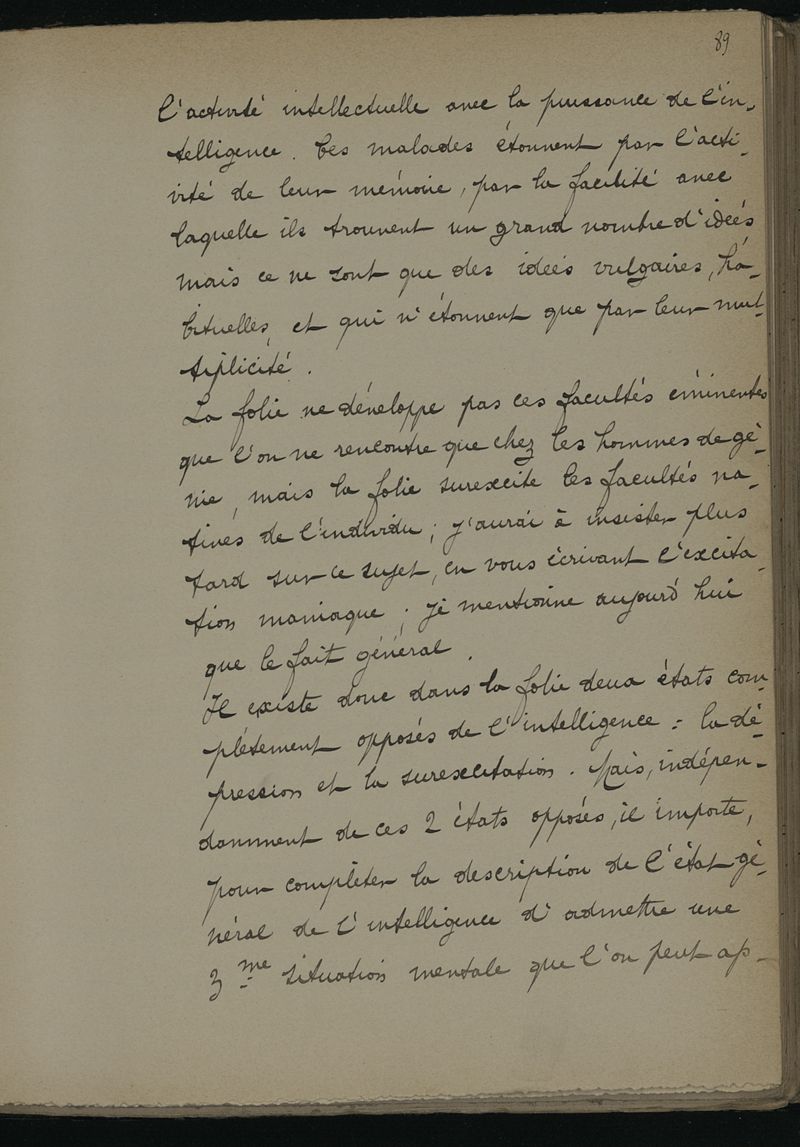 89
l'activité intellectuelle avec la puissance de l'in-
telligence. Ces malades étonnent par l'acti-
vité de leur mémoire, par la facilité avec
laquelle ils trouvent un grand nombre d'ideés
mais ce ne sont que des ideés vulgaires, ha-
bituelles, et qui n'étonnent que par leur mul-
tiplicité.
La folie ne développe pas ces facultés éminentes
que l'on ne rencontre que chez les hommes de gé-
nie, mais la folie surexcite les facultés na-
tives de l'individu ; j'aurai à insister plus
tard sur ce sujet, en vous écrivant l'excita-
tion maniaque ; je mentionne aujourd'hui
que le fait général.
Il existe donc dans la folie deux états com-
plètement opposés de l'intelligence : la dé-
pression et la surexcitation. Mais, indépen-
damment de ces 2 états opposés, il importe,
pour compléter la description de l'état gé-
néral de l'intelligence d'admettre une
3me situation mentale que l'on peut ap-